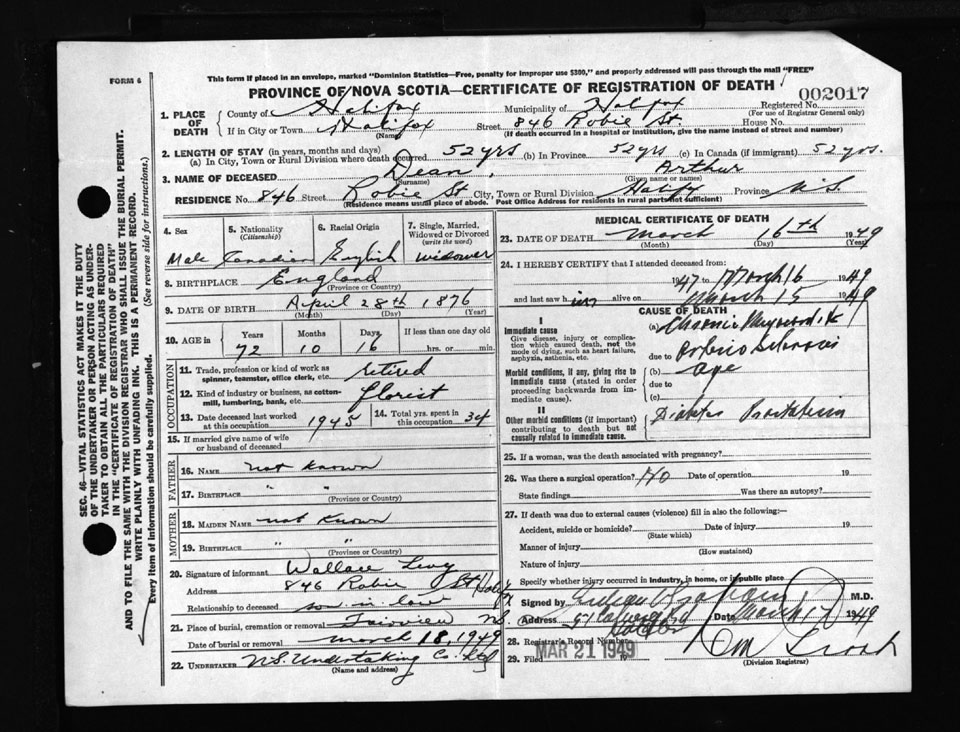 FORM 6
This form if placed in an envelope, marked "Dominion Statistics—Free, penalty for improper use $300," and properly addressed will pass through the mail "FREE"
PROVINCE OF NOVA SCOTIA—CERTIFICATE OF REGISTRATION OF DEATH
002017
1. PLACE OF DEATH
County of Halifax Municipality of Halifax Registered No.
(For use of Registrar General only)
If in City or Town Halifax Street 846 Robie St. House No.
(Name) (If death occurred in a hospital or institution, give the name instead of street and number)
2. LENGTH OF STAY (in years, months and days)
(a) In City, Town or Rural Division where death occurred 52 yrs (b) In Province 52 yrs (c) In Canada (if immigrant) 52 yrs.
3. NAME OF DECEASED Dean, Arthur
(Surname) (Given name or names)
RESIDENCE No. 846 Street Robie St City, Town or Rural Division Halifx Province N.S.
(Residence means usual place of abode. Post Office Address for residents in rural parts not sufficient)
4. Sex 5. Nationality (Citizenship) 6. Racial Origin 7. Single, Married, Widowed or Divorced (write the word)
Male Canadian English widower
8. BIRTHPLACE England
(Province or Country)
9. DATE OF BIRTH April 28th 1876
(Month) (Day) (Year)
10. AGE in Years Months Days If less than one day old
72 10 16 hrs. or min.
OCCUPATION
11. Trade, profession or kind of work as spinner, teamster, office clerk, etc. retired
12. Kind of industry or business, as cotton-mill, lumbering, bank, etc. florist
13. Date deceased last worked at this occupation 1945 14. Total yrs. spent in this occupation 34
15. If married give name of wife or husband of deceased
FATHER
16. NAME not known
17. BIRTHPLACE " "
(Province or Country)
MOTHER
18. MAIDEN NAME not known
19. BIRTHPLACE " "
(Province or Country)
20. Signature of informant Wallace Levy
Address 846 Robie St Halifx
Relationship to deceased son-in-law
21. Place of burial, cremation or removal Fairview N.S.
Date of burial or removal March 18, 1949
22. UNDERTAKER N.S. Undertaking Co. Ltd
(Name and address)
MEDICAL CERTIFICATE OF DEATH
23. DATE OF DEATH March 16th 1949
(Month) (Day) (Year)
24. I HEREBY CERTIFY that I attended deceased from:
1947 to March 16 1949
and last saw him alive on March 15 1949
CAUSE OF DEATH
I
Immediate cause
Give disease, injury or complication which caused death, not the mode of dying, such as heart failure, asphyxia, asthenia, etc.
(a) Chronic
due to
Morbid conditions, if any, giving rise to immediate cause (stated in order proceeding backwards from immediate cause).
(b) age
due to
(c)
II
Other morbid conditions (if important) contributing to death but not causally related to immediate cause.
Diabetes
25. If a woman, was the death associated with pregnancy?
26. Was there a surgical operation? No Date of operation 19
State findings Was there an autopsy?
27. If death was due to external causes (violence) fill in also the following:—
Accident, suicide or homicide? Date of injury 19
(State which)
Manner of injury
(How sustained)
Nature of injury
Specify whether injury occurred in industry, in home, or in public place
Signed by M.D.
Address Date March 17 1949
28. Registrar's Record Number
29. Filed MAR 21 1949 19
(Division Registrar)
SEC. 46—VITAL STATISTICS ACT MAKES IT THE DUTY
OF THE UNDERTAKER OR PERSON ACTING AS UNDER-
TAKER TO OBTAIN ALL THE PARTICULARS REQUIRED
IN THE "CERTIFICATE OF REGISTRATION OF DEATH"
AND TO FILE THE SAME WITH THE DIVISION REGISTRAR WHO SHALL ISSUE THE BURIAL PERMIT.
WRITE PLAINLY WITH UNFADING INK. THIS IS A PERMANENT RECORD.
Every item of information should be carefully supplied. (See reverse side for instructions.)